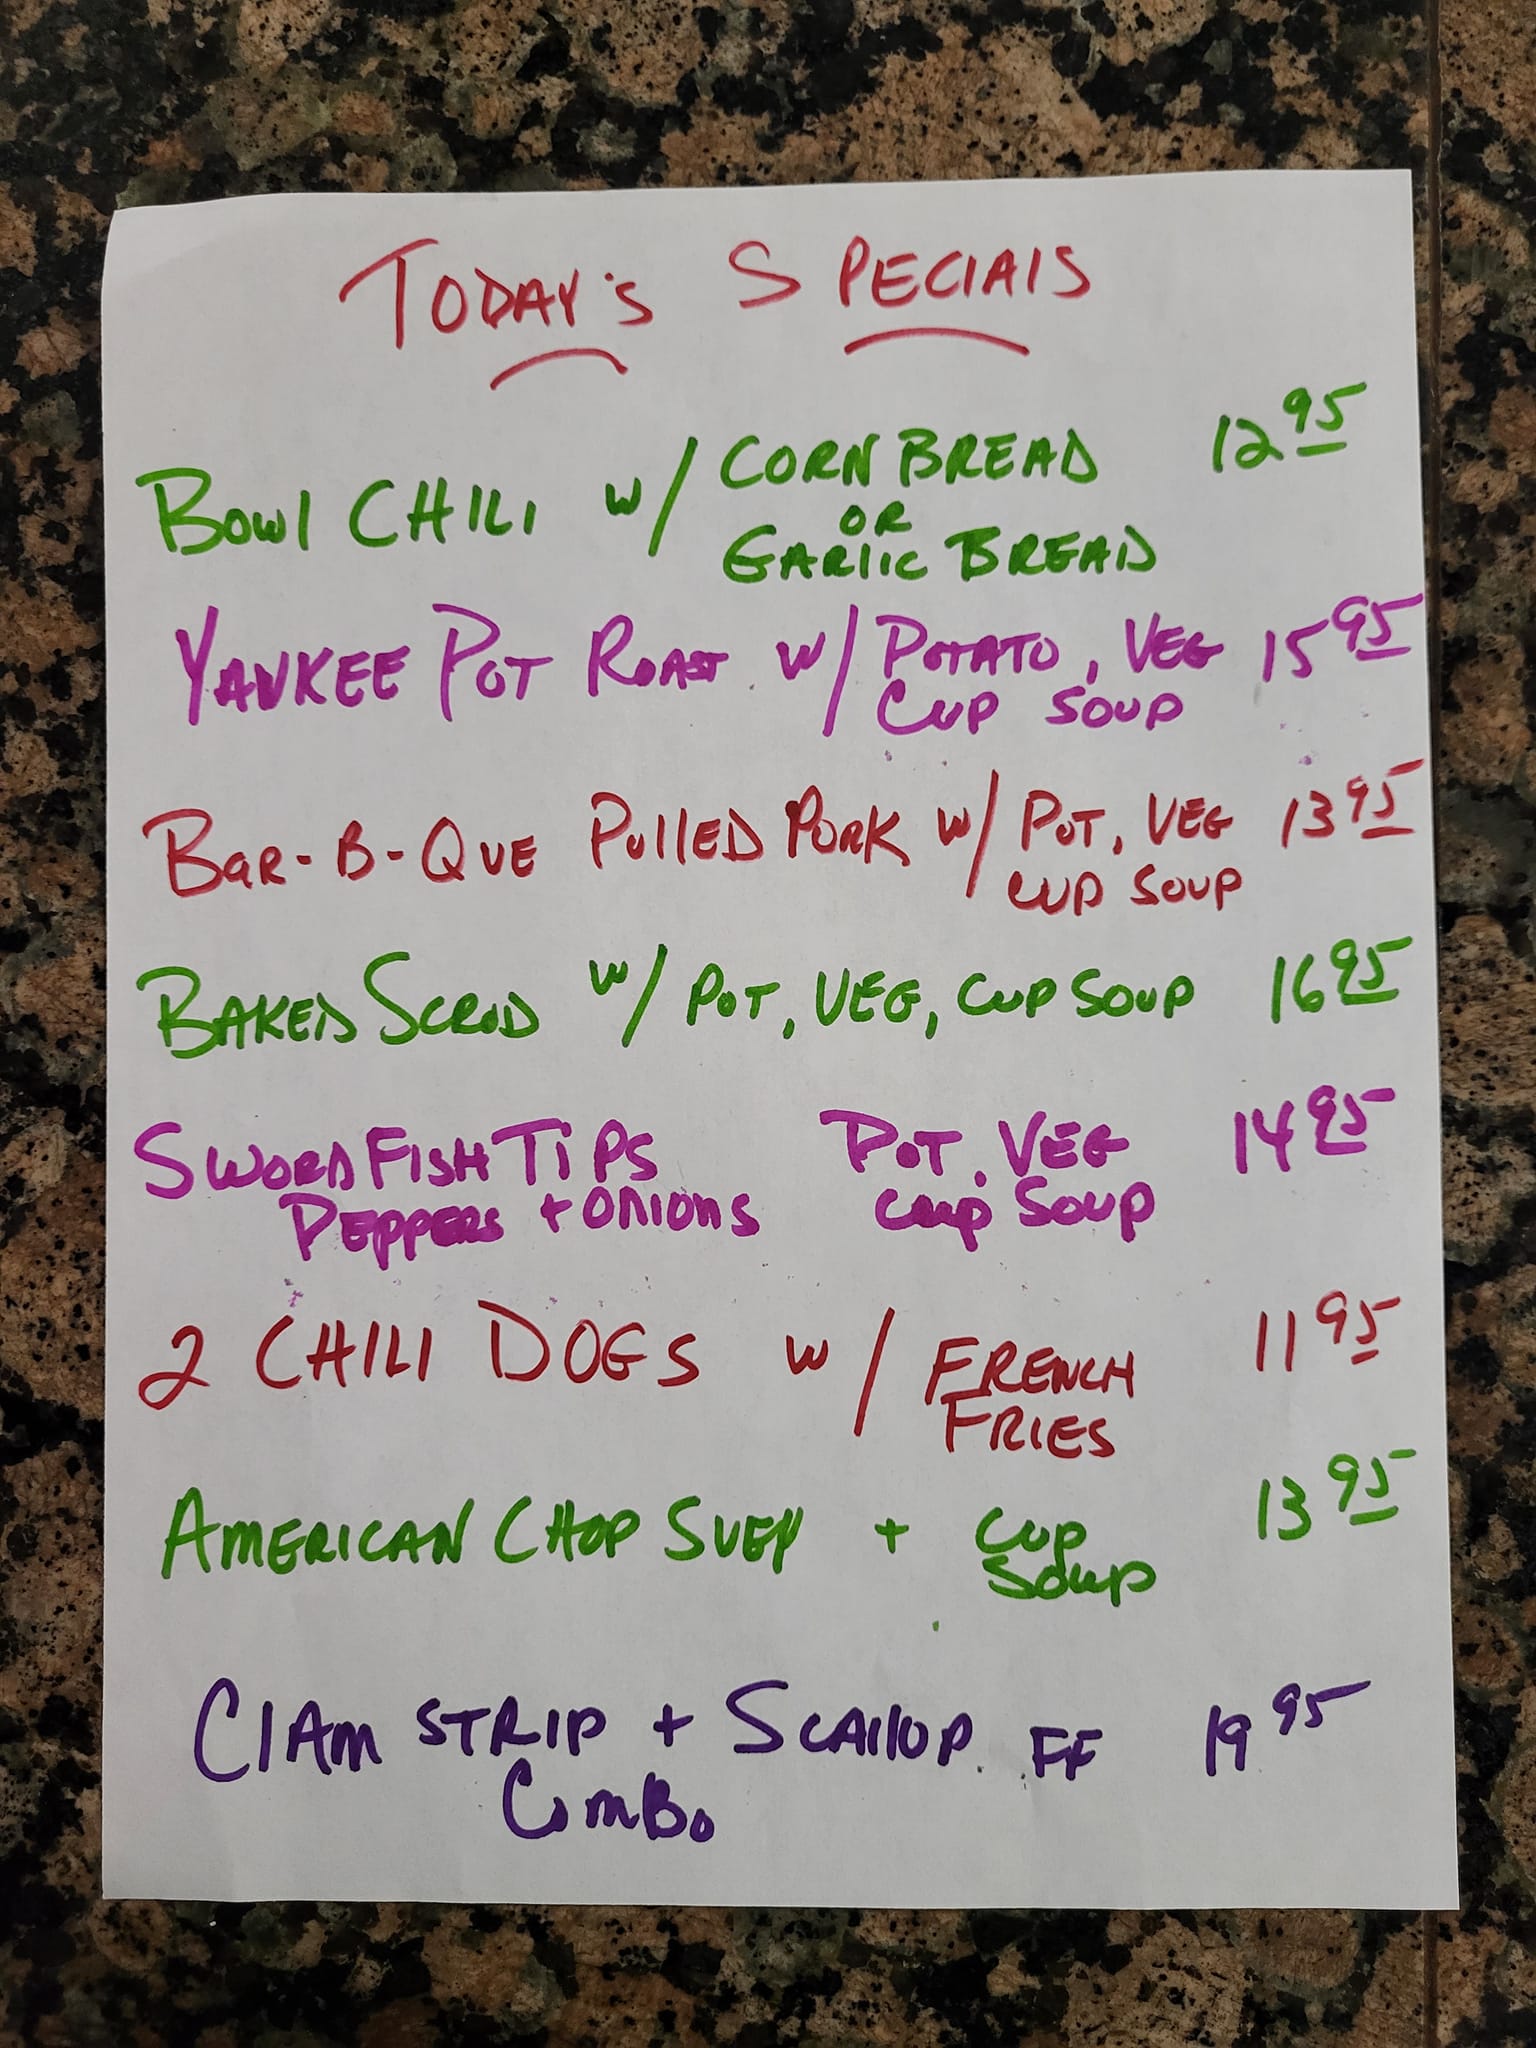 TODAY'S SPECIALS
BOWL CHILI w/ CORN BREAD 12 95
OR
GARLIC BREAD
YANKEE POT ROAST w/ POTATO, VEG 15 95
CUP SOUP
BAR-B-QUE PULLED PORK w/ POT, VEG 13 95
CUP SOUP
BAKED SCROD w/ POT, VEG, CUP SOUP 16 95
SWORDFISH TIPS POT, VEG 14 95
PEPPERS + ONIONS CUP SOUP
2 CHILI DOGS w/ FRENCH 11 95
FRIES
AMERICAN CHOP SUEY + CUP 13 95
SOUP
CLAM STRIP + SCALLOP FF 19 95
COMBO